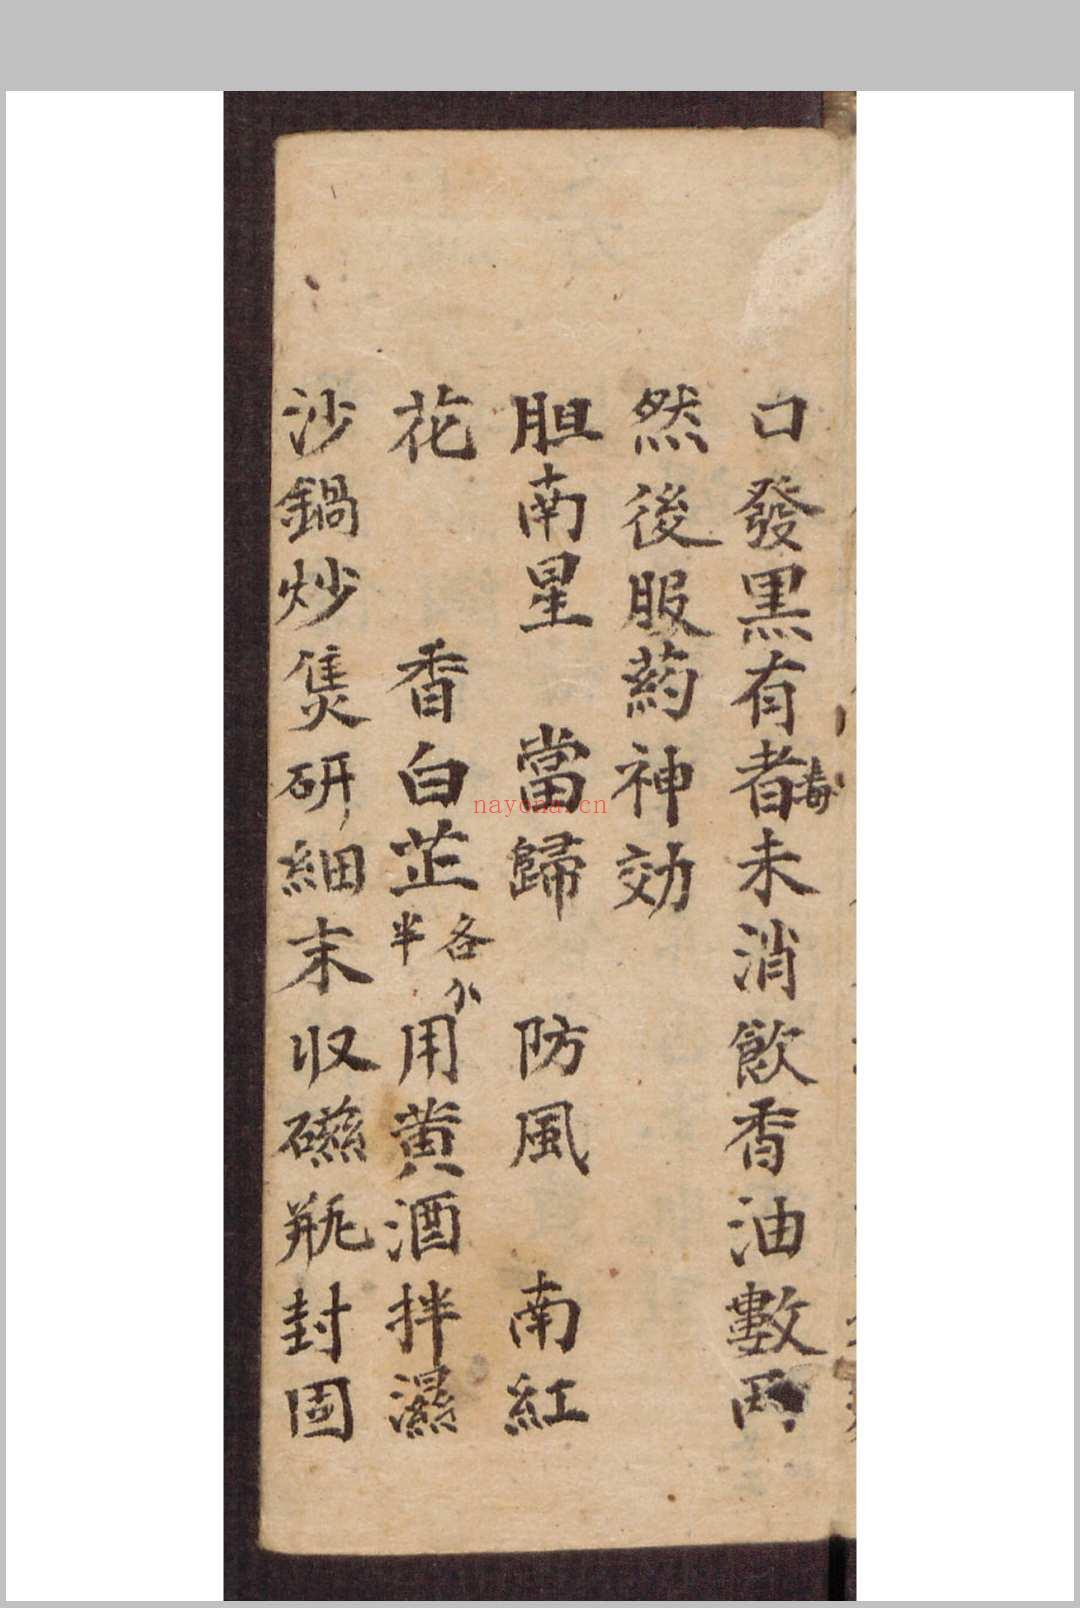 口發黑有者毒未消飲香油數两
然後服药神効
胆南星 當歸 防風 南紅
花 香白芷各半分用黄酒拌濕
沙鍋炒隻研細末収磁瓶封固
nayona.cn